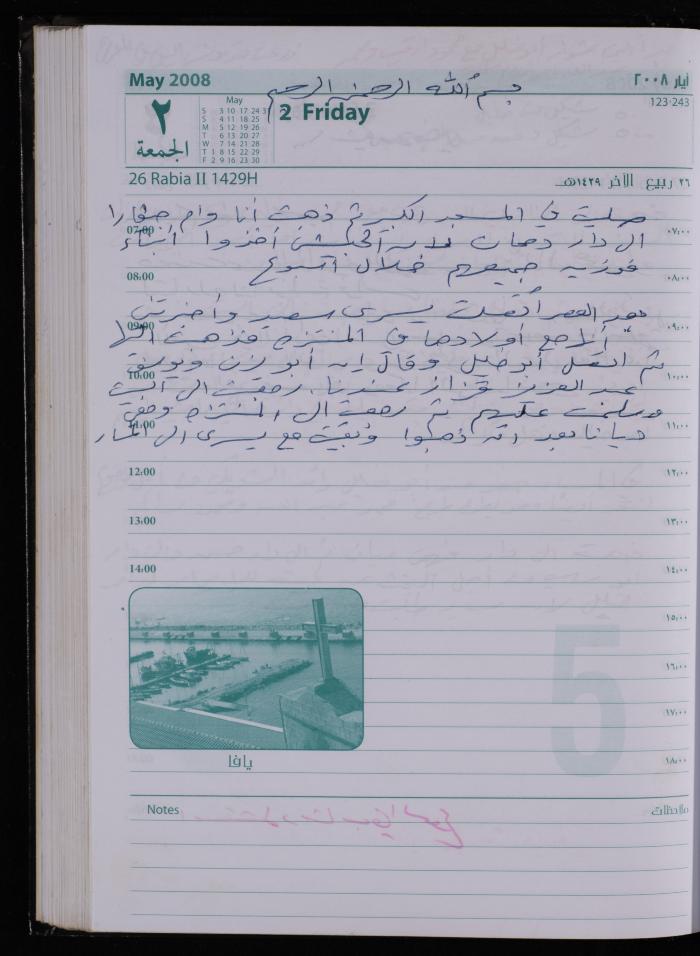 May 2008
أيار ٢٠٠٨
بسم الله الرحمن الرحيم
٢
الجمعة
May
S 3 10 17 24 31
S 4 11 18 25
M 5 12 19 26
T 6 13 20 27
W 7 14 21 28
T 1 8 15 22 29
F 2 9 16 23 30
2 Friday
123-243
26 Rabia II 1429H
٢٦ ربيع الآخر ١٤٢٩هـ
صليت في المسجد الكبير ثم ذهبت أنا وام
07:00
٠٧:٠٠
ال دار أخذوا أبناء
فوزيه جميعهم خلال اسبوع
08:00
٠٨:٠٠
بعد العصر اتصلت يسرى سعيد وأخبرتني
09:00
٠٩:٠٠
أولادها في المنتزه فذهبت اليها
ثم اتصل أبو خليل وقال إنه أبو
10:00
١٠:٠٠
عبد العزيز عندنا. رجعت ال البيت
وسلمت عليهم ثم رجعت ال المنتزه
11:00
١١:٠٠
بعد ذهبوا وبقيت مع يسرى ال
12:00
١٢:٠٠
13:00
١٣:٠٠
14:00
١٤:٠٠
١٥:٠٠
١٦:٠٠
١٧:٠٠
١٨:٠٠
5
يافا
Notes
ملاحظات